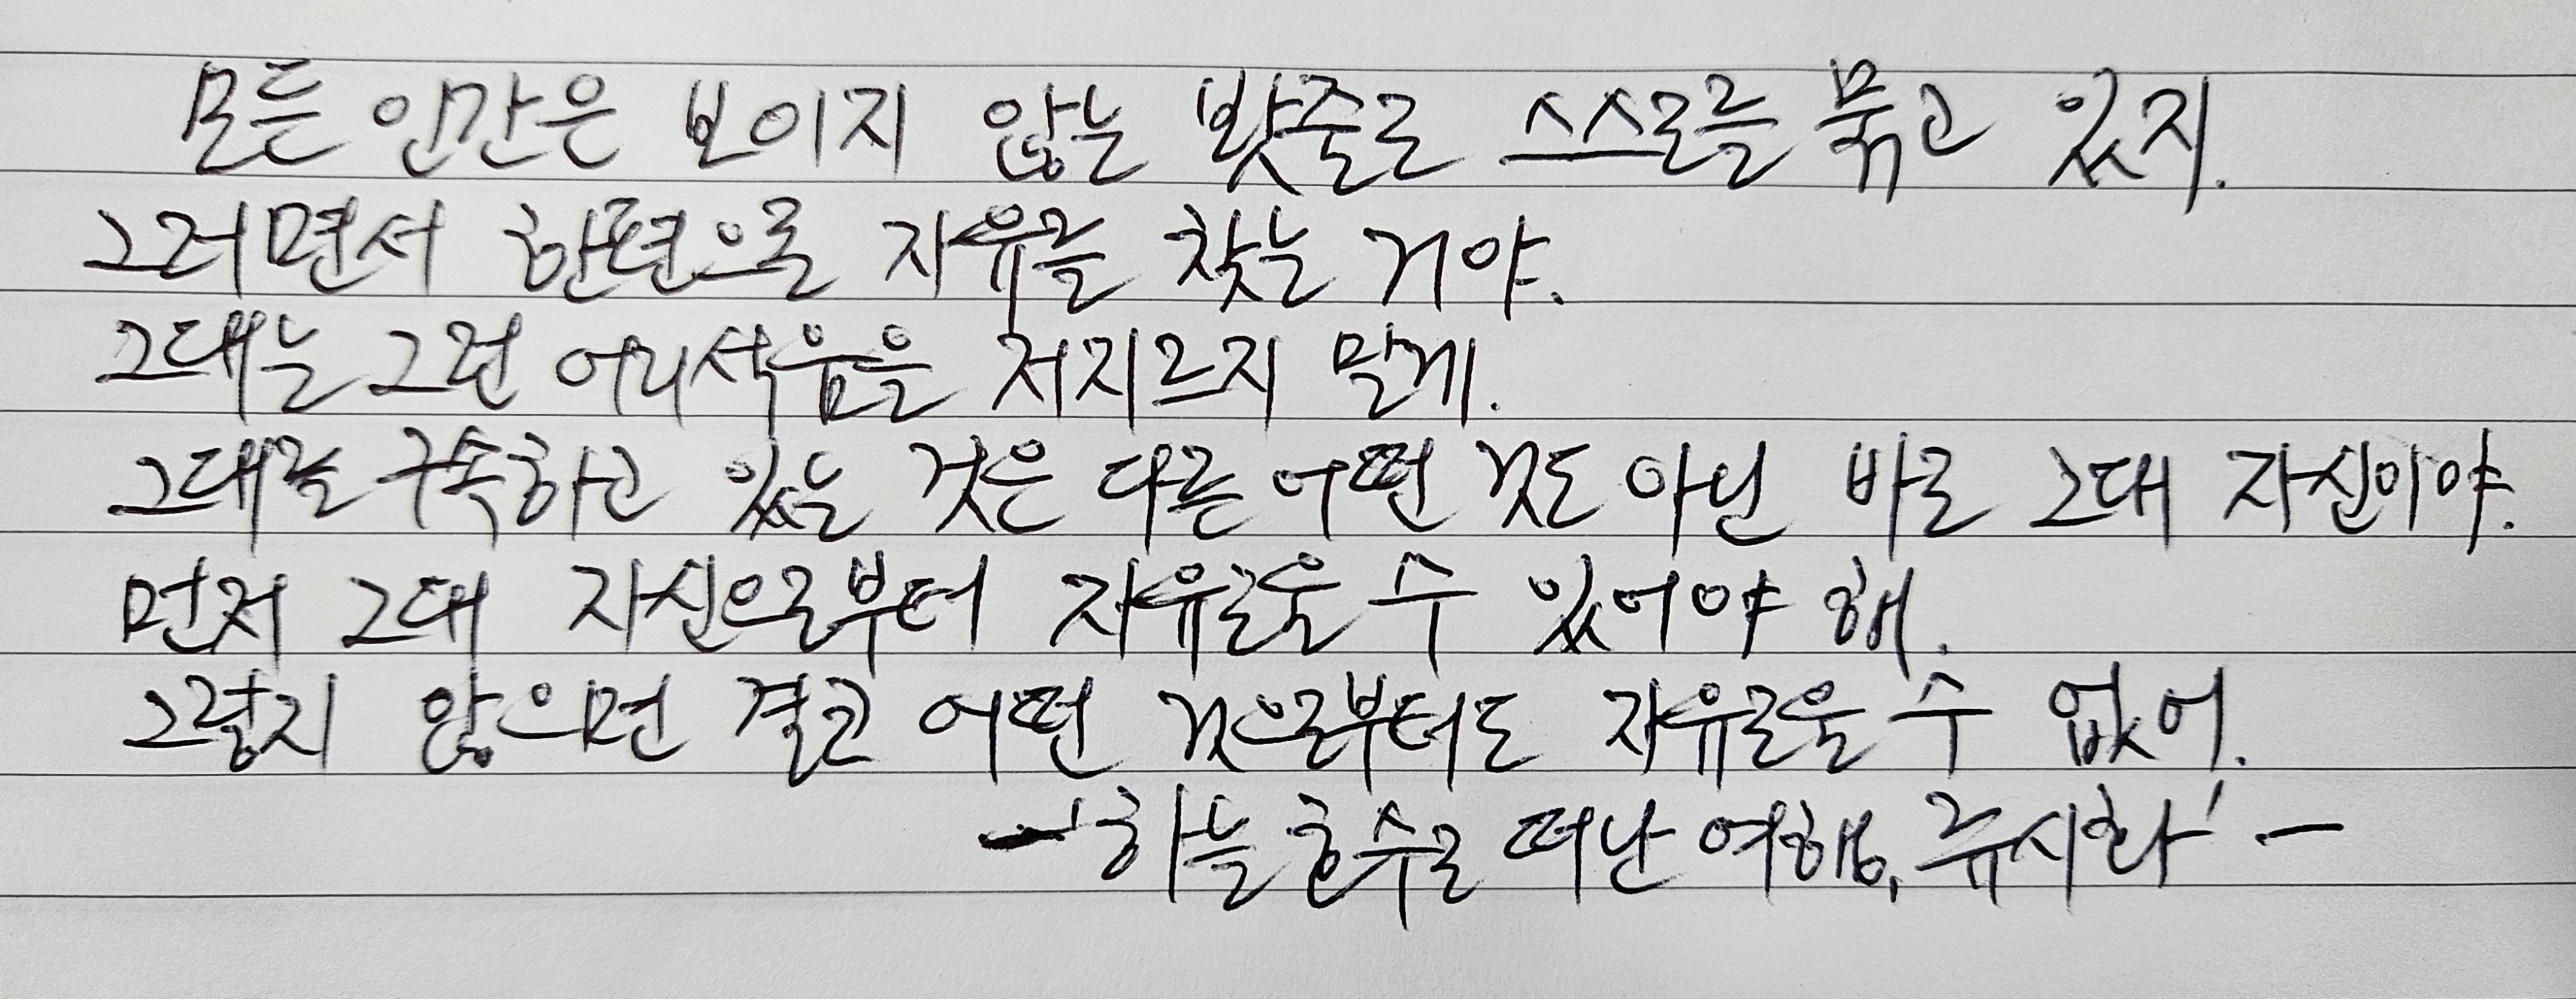 모든 인간은 보이지 않는 밧줄로 스스로를 묶고 있지.
그러면서 한편으로 자유를 찾는 거야.
그대는 그런 어리석음을 저지르지 말게.
그대를 구속하고 있는 것은 다른 어떤 것도 아닌 바로 그대 자신이야.
먼저 그대 자신으로부터 자유로울 수 있어야 해.
그렇지 않으면 결코 어떤 것으로부터도 자유로울 수 없어.
-'하늘 호수로 떠난 여행, 류시화' -